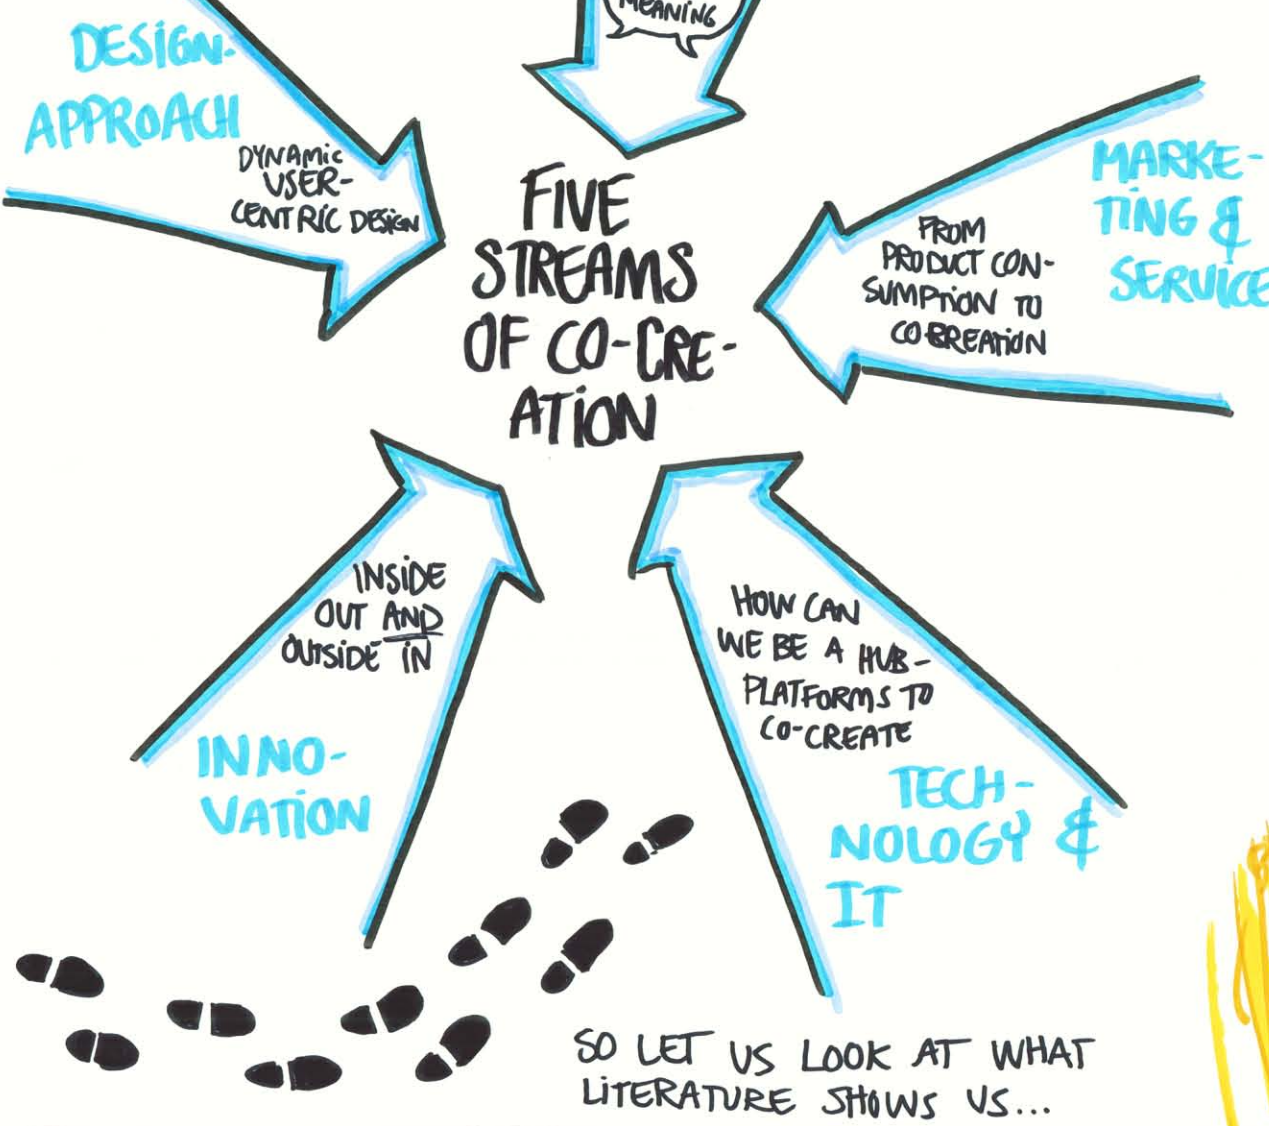 MEANING
DESIGN-
APPROACH
DYNAMIC
USER-
CENTRIC DESIGN
FIVE
STREAMS
OF CO-CRE-
ATION
MARKE-
TING &
SERVICE
FROM
PRODUCT CON-
SUMPTION TO
COCREATION
INSIDE
OUT AND
OUTSIDE IN
INNO-
VATION
HOW CAN
WE BE A HUB-
PLATFORMS TO
CO-CREATE
TECH-
NOLOGY &
IT
SO LET US LOOK AT WHAT
LITERATURE SHOWS US...